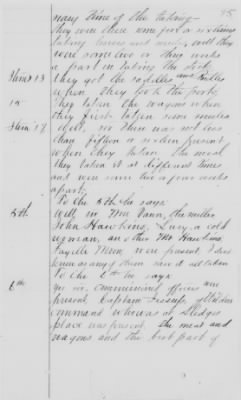 75
many times of the taking
they were there some for a six times
taking horses and mules, well they
were some two or three weeks
apart in taking the stock
Item 13 they got the saddles and bridles
when they took the forts.
15 They taken the wagons when
they first taken some mules
Item 17 also, or there was not less
than fifteen or sixteen present
when they taken the meal
they taken it at different times
and were some two or four weeks
apart,
To the 5th he says
5th Will, in Wm Vann, the miller
John Hawkins, Lucy a cold
woman, an other Mr Hawkins
Fayette Mann were present I dont
know as any of them saw it all taken
To the 6th he says
6th Yes sir, commissioned officers were
present, Captain
command who was at Sledges
place was present, the meat and
wagons and the best part of